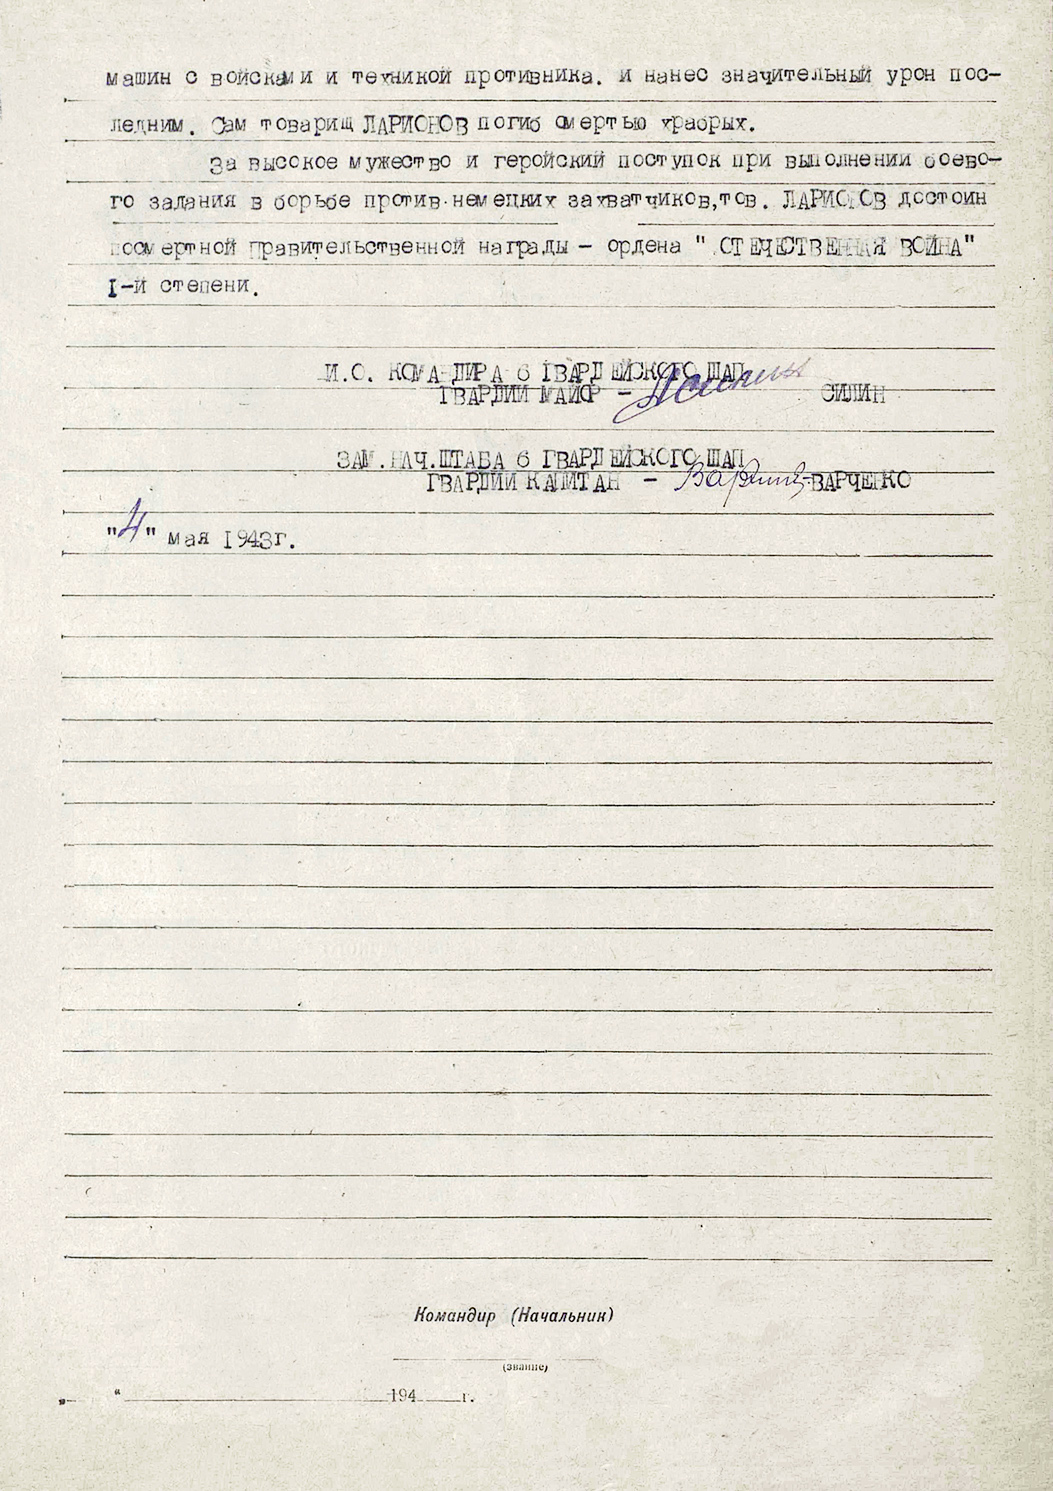 машин с войсками и техникой противника. и нанес значительный урон пос-
ледним. Сам товарищ ЛАРИОНОВ погиб смертью храбрых.
За высокое мужество и геройский поступок при выполнении боево-
го задания в борьбе против немецких захватчиков,тов. ЛАРИОНОВ достоин
посмертной правительственной награды - ордена " ОТЕЧЕСТВЕННАЯ ВОЙНА"
I-й степени.
И.О. КОМАНДИРА 6 ГВАРДЕЙСКОГО ШАП
ГВАРДИИ МАЙОР - СИЛИН
ЗАМ.НАЧ.ШТАБА 6 ГВАРДЕЙСКОГО ШАП
ГВАРДИИ КАПИТАН - ВАРЧЕНКО
"4" мая 1943г.
Командир (Начальник)
(звание)
„ “ 194 г.